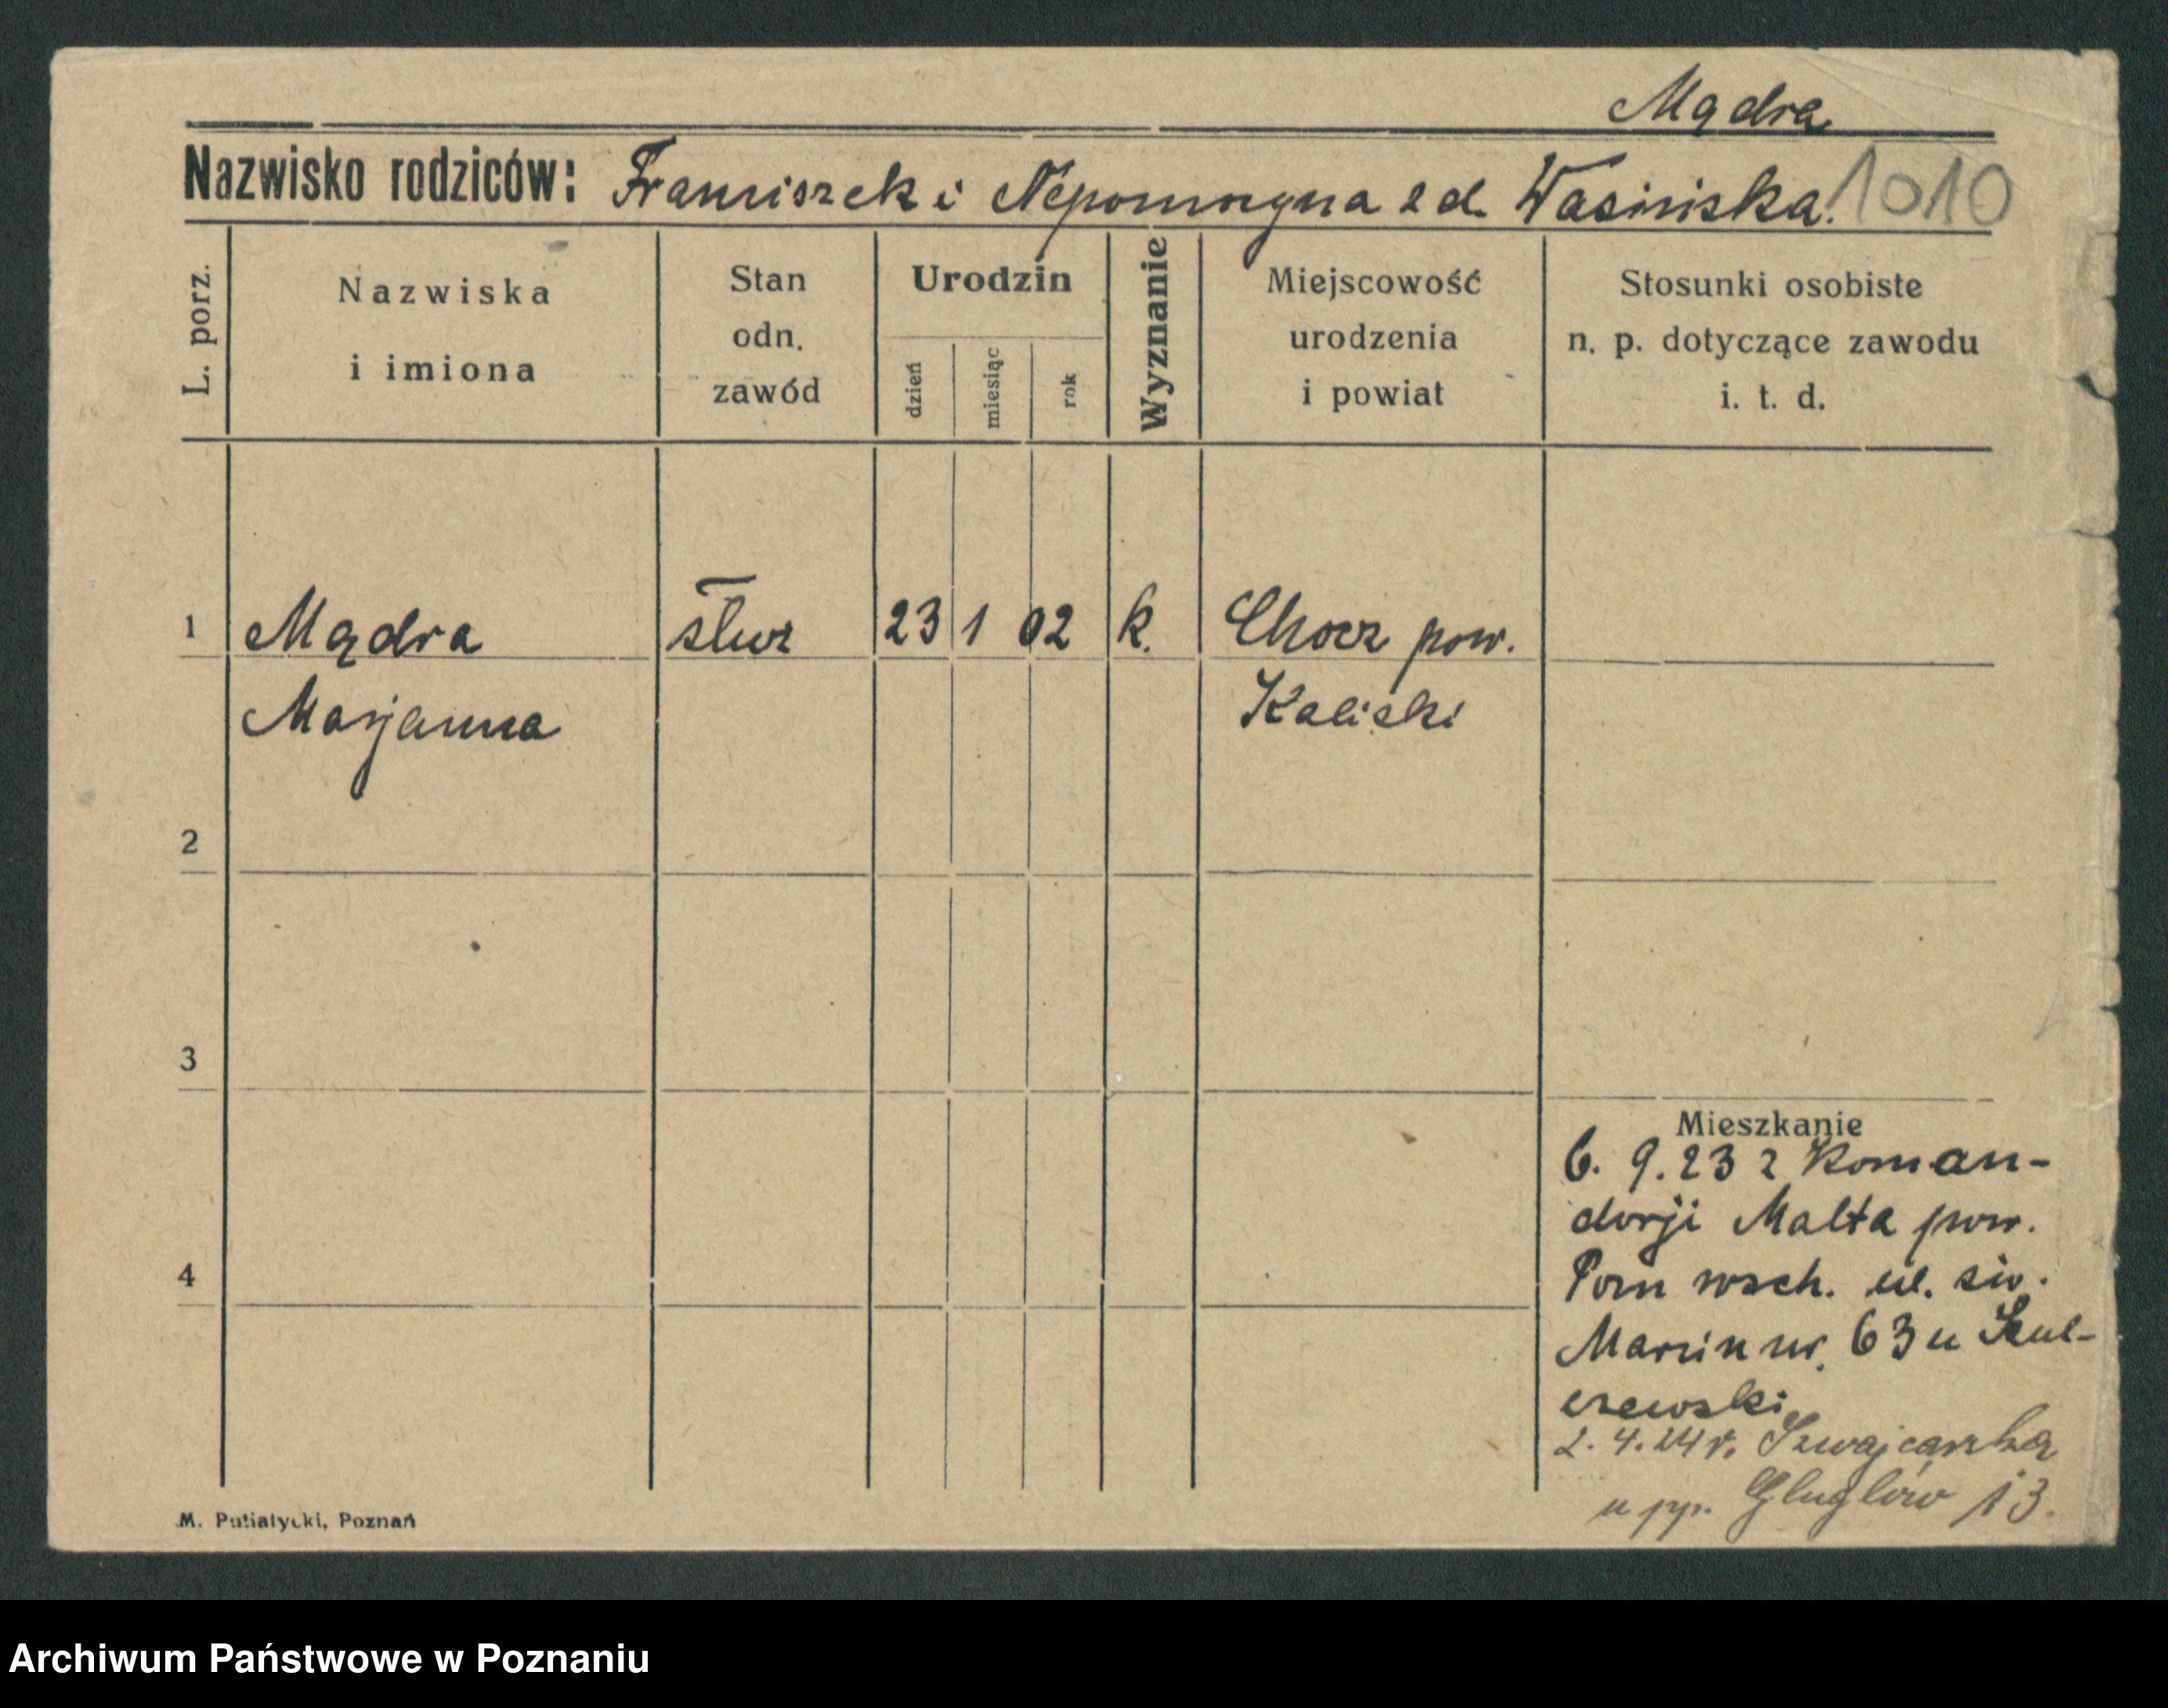 Mądra
Nazwisko rodziców: Franciszek i Nepomogna z d. Wasinska. 1010
L. porz.
Nazwiska i imiona
Stan odn. zawód
Urodzin
dzień miesiąc rok
Wyznanie
Miejscowość urodzenia i powiat
Stosunki osobiste n. p. dotyczące zawodu i. t. d.
1 Mądra służ 23 1 02 k. Chocz pow.
Marjanna Kaliski
2
3
Mieszkanie
6. 9. 23 z Koman-
dorji Malta pow.
4
Pozn wsch. ul. św.
Marcin nr. 63 u Kul-
czewski
2. 4. 24 r. Szwajcarska
u pp. 13.
M. Putiatycki, Poznań
Archiwum Państwowe w Poznaniu